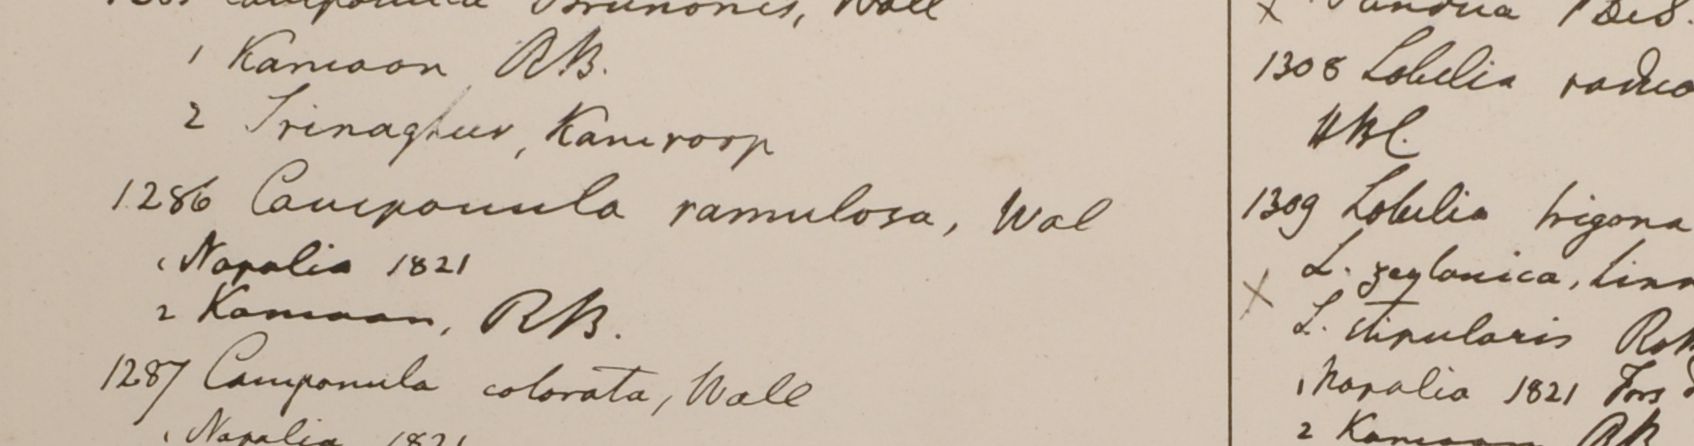 Campanula Brunonis, Wall
1 Kamaon RB.
2 Srinaghur, Kamroop
1286 Campanula ramulosa, Wal
1 Napalia 1821
2 Kamaon, RB.
1287 Campanula colorata, Wall
1 Napalia 1821
1308 Lobelia
HBC.
1309 Lobelia trigona
L. zeylanica, Linn
L. stipularis
1 Napalia 1821
2 Kamaon RB